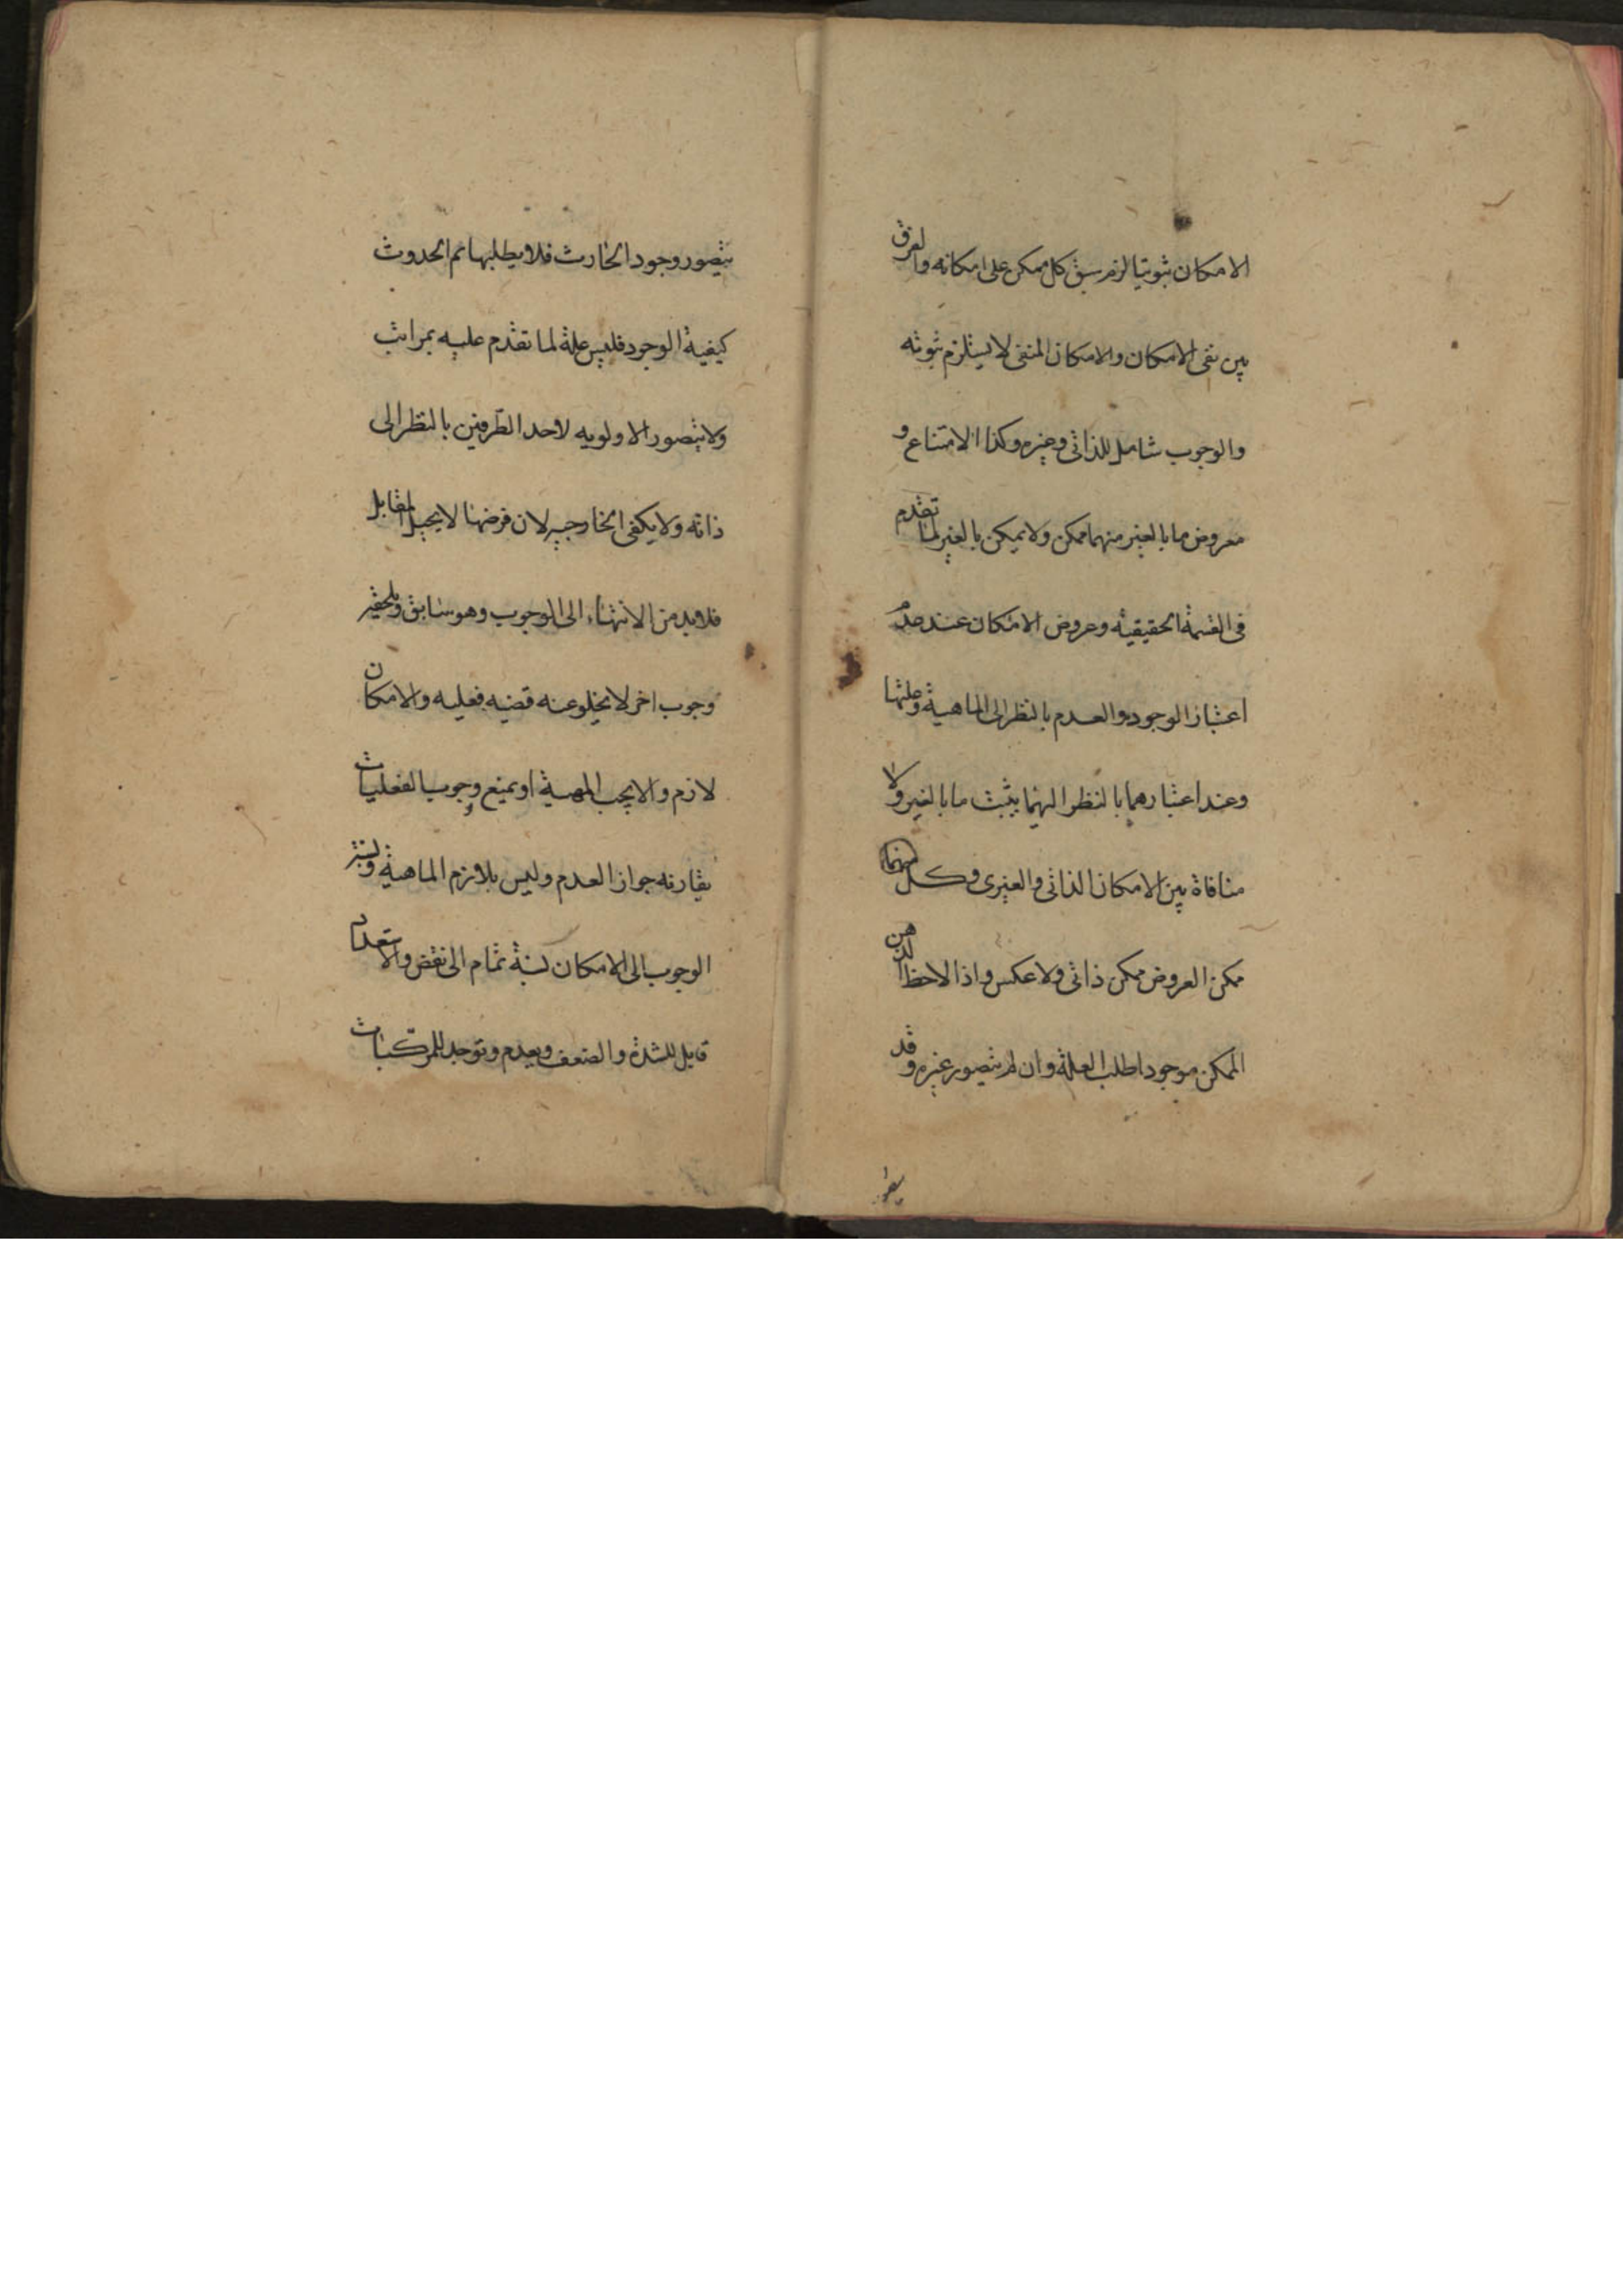 الامكان ثبوتيا لزم سبق كل ممكن على امكانه والفرق
بين نفى الامكان والامكان المنفى لا يستلزم ثبوته
والوجوب شامل للذاتى وغيره وكذا الامتناع و
معروض ما بالغير منهما ممكن ولا ممكن بالغير لما تقدم
فى القسمة الحقيقية وعروض الامكان عند عدم
اعتبار الوجود والعدم بالنظر الى الماهية وعلتها
وعند اعتبارهما بالنظر اليهما يثبت ما بالغير ولا
منافاة بين الامكان الذاتى والغيرى وكل
ممكن العروض ممكن ذاتى ولا عكس واذا لاحظ الذهن
الممكن موجودا طلب العلة وان لم يتصور غيره وقد
يتصور وجود الحادث فلا يطلبها ثم الحدوث
كيفية الوجود فليس علة لما تقدم عليه بمراتب
ولا يتصور الاولويه لاحد الطرفين بالنظر الى
ذاته ولا يكفى الخارجيه لان فرضها لا يحيل المقابل
فلا بد من الانتهاء الى الوجوب وهو سابق ويلحقه
وجوب اخر لا يخلو عنه قضيه فعليه والامكان
لازم والا يجب المهية او يمتنع ووجوب الفعليات
يقارنه جواز العدم وليس بلازم الماهية ونسبة
الوجوب الى الامكان نسبة تمام الى نقص والاستعداد
قابل للشدة والضعف ويعدم وتوجد للمركبات